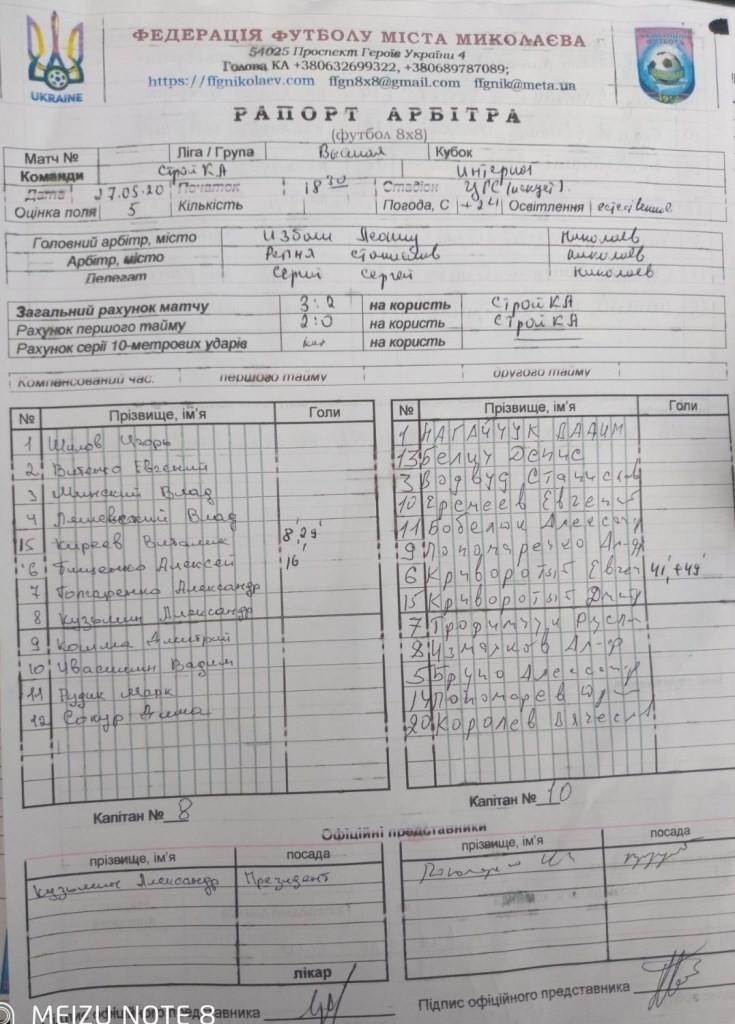 ФЕДЕРАЦІЯ ФУТБОЛУ МІСТА МИКОЛАЄВА
54025 Проспект Героїв України 4
Голова КА +380632699322, +380689787089;
https://ffgnikolaev.com ffgn8x8@gmail.com ffgnik@meta.ua
UKRAINE
РАПОРТ АРБІТРА
(футбол 8х8)
Матч № Ліга / Група Высшая Кубок
Команди Строй КА Интернат
Дата 27.05.20 Початок 18 30 Стадіон ЦГС
Оцінка поля 5 Кількість Погода, С +24 Освітлення
Головний арбітр, місто Николаев
Арбітр, місто Репня Станислав николаев
Делегат Серий Сергей Николаев
Загальний рахунок матчу 3:2 на користь Строй КА
Рахунок першого тайму 2:0 на користь Строй КА
Рахунок серії 10-метрових ударів на користь
Компенсований час: першого тайму другого тайму
№ Прізвище, ім'я Голи
1 Шилов Игорь
2 Витенко Евгений
3 Минский Влад
4 Ляшевский Влад
15 Киреев Виталик 8',29'
6 Тищенко Алексей 16'
7 Гончаренко Александр
8 Кузьмин Александр
9 Кошма Дмитрий
10 Ивасишин Вадим
11 Рудик Марк
12 Сокур Дима
Капітан № 8
№ Прізвище, ім'я Голи
1 НАГАЙЧУК ВАДИМ
13 Белиц Денис
3 Водвуд Станислав
10 Еремеев Евгений
11 Бобелюк Александр
9 Пономаренко Ал-др
6 Криворотый Евген 41', +49'
15 Криворотый Дмитр
7 Трофимчук Русл
8 Измайлов Ал-р
5 Бруно Александр
14 Пономарев
20 Королев Вячесл
Капітан № 10
Офіційні представники
прізвище, ім'я посада
Кузьмин Александр Президент
лікар
Підпис офіційного представника
прізвище, ім'я посада
Підпис офіційного представника
MEIZU NOTE 8